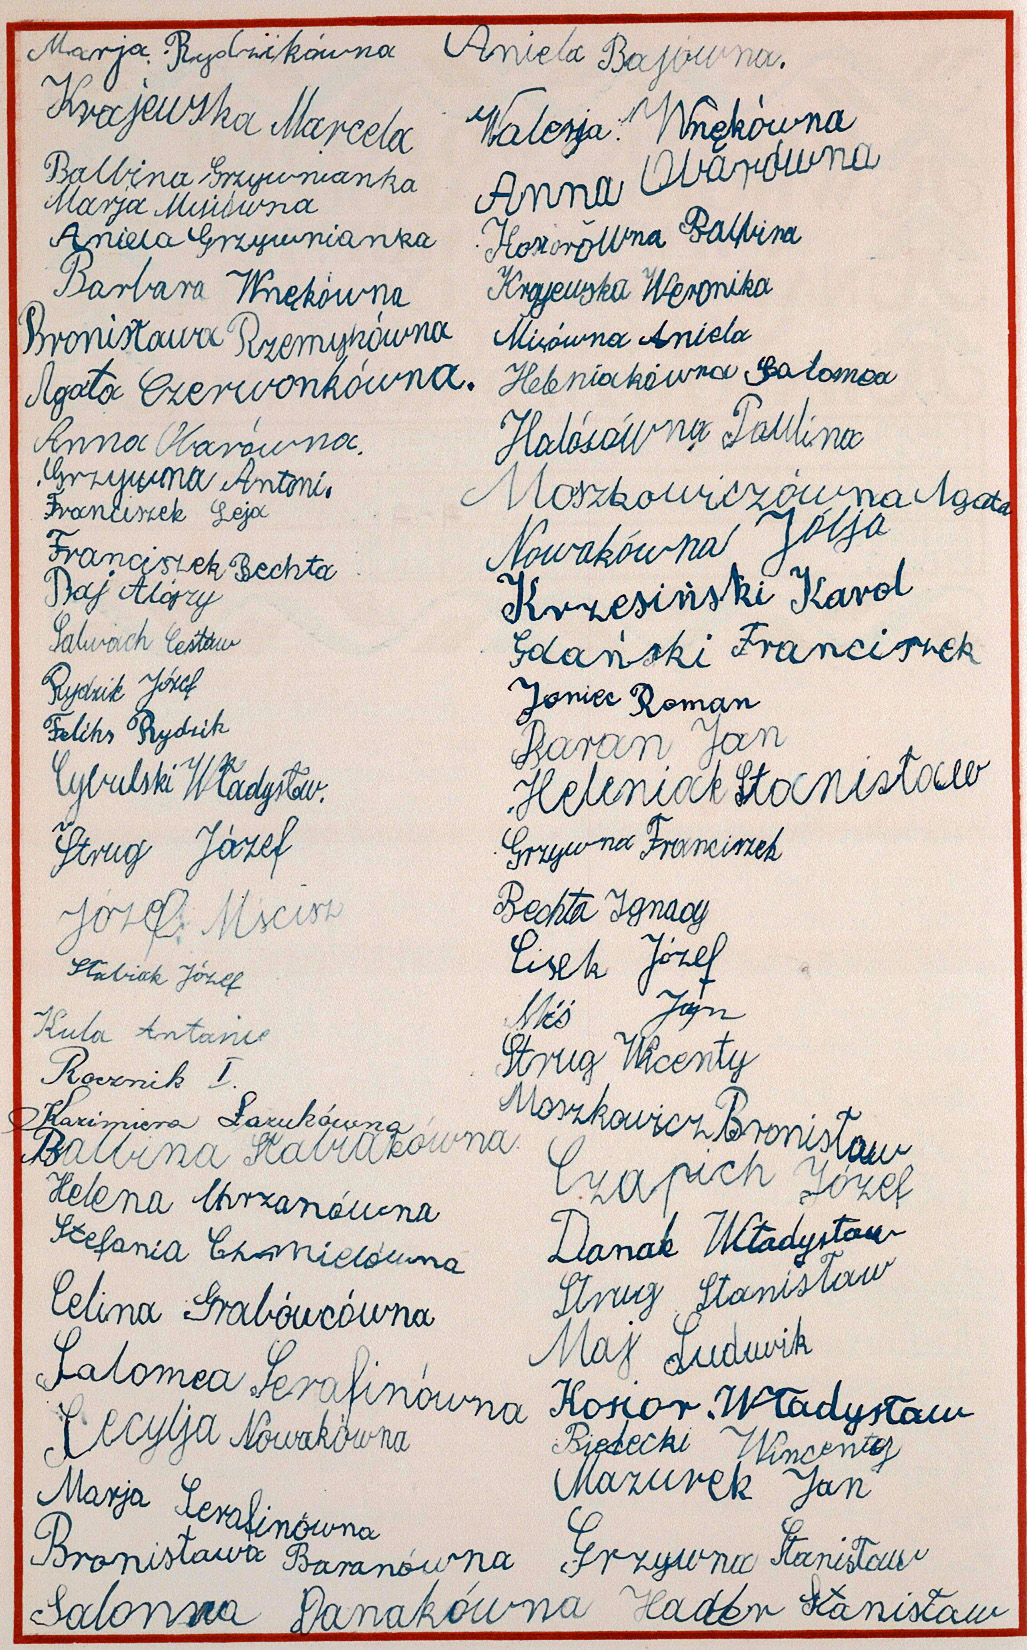 Marja Rydzikówna
Krajewska Marcela
Balbina Grzywnianka
Marja Misiówna
Aniela Grzywnianka
Barbara Wnękówna
Bronisława Rzemykówna
Agata Czerwonkówna.
Anna Obarówna.
Grzywna Antoni.
Franciszek Leja
Franciszek Bechta
Baj Alojzy
Salwach Cesław
Rydzik Józef
Feliks Rydzik
Cybulski Władysław.
Strug Józef
Józef Mścisz
Stabiak Józef
Kula Antonie
Rocznik I.
Kazimiera Łazukówna
Balbina Stabiakówna
Helena Chrzanówna
Stefania Chmielówna
Celina Grabówcówna
Salomea Serafinówna
Cecylja Nowakówna
Marja Serafinówna
Bronisława Baranówna
Salomea Danakówna
Aniela Bajówna.
Walerja Wnękówna
Anna Obarówna
Kosiorówna Balbina
Krajewska Weronika
Misiówna Aniela
Heleniakówna Salomea
Paulina
Moszkowiczówna Agata
Nowakówna Jólja
Krzesiński Karol
Gdański Franciszek
Joniec Roman
Baran Jan
Heleniak Stanisław
Grzywna Franciszek
Bechta Ignacy
Cisek Józef
Miś Jan
Strug Wicenty
Moszkowicz Bronisław
Czapich Józef
Danak Władysław
Strug Stanisław
Maj Ludwik
Kosior Władysław
Bielecki Wincenty
Mazurek Jan
Grzywna Stanisław
Hader Stanisław